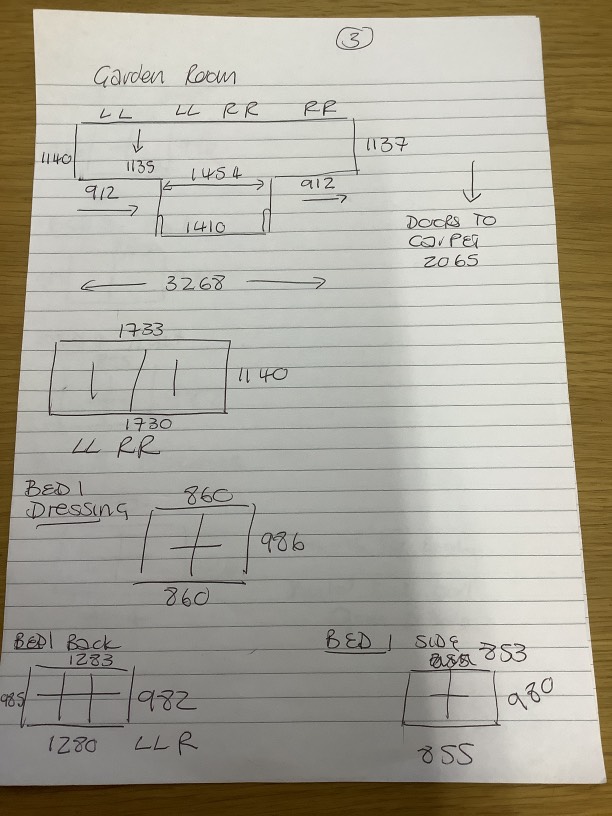 3
Garden Room
LL LL RR RR
1140 1135 1454 1137
912 912
1410
DOORS TO
CARPET
2065
3268
1733
1140
1730
LL RR
BED 1
Dressing
860
986
860
BED 1 Back
1283
985 982
1280 LLR
BED 1 SIDE
853
980
855